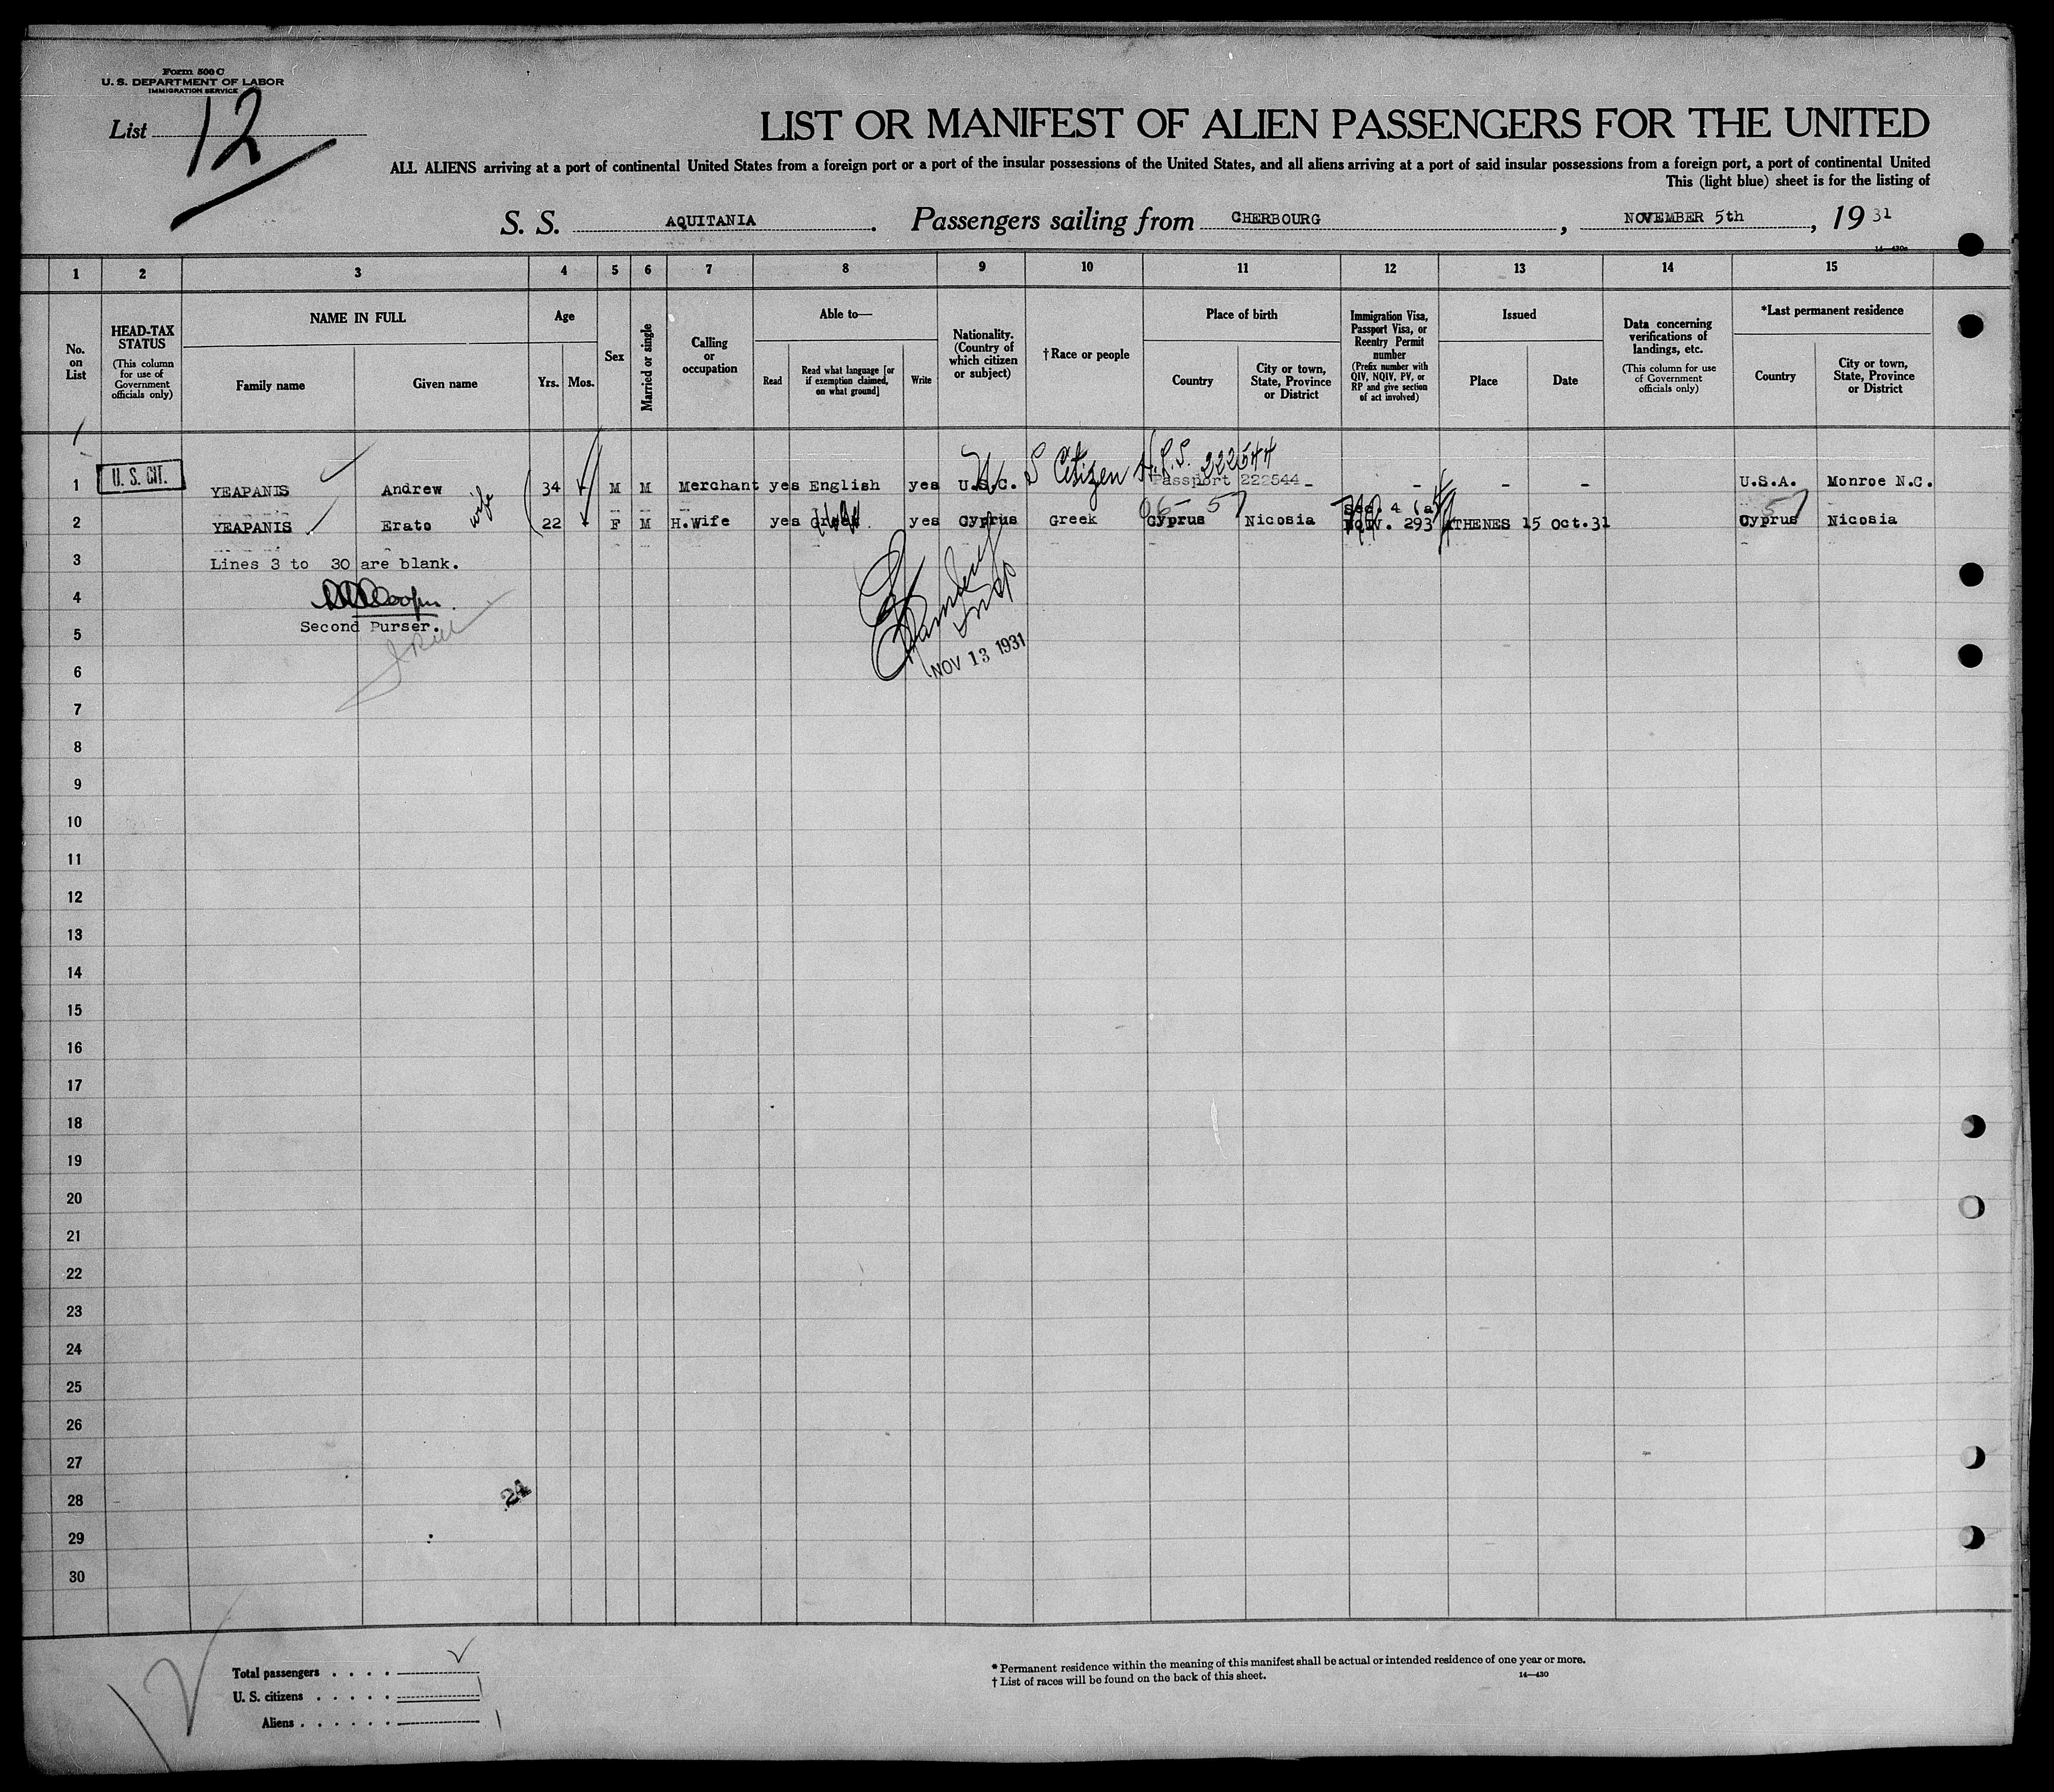 Form 500 C
U. S. DEPARTMENT OF LABOR
IMMIGRATION SERVICE
List 12
LIST OR MANIFEST OF ALIEN PASSENGERS FOR THE UNITED
ALL ALIENS arriving at a port of continental United States from a foreign port or a port of the insular possessions of the United States, and all aliens arriving at a port of said insular possessions from a foreign port, a port of continental United
This (light blue) sheet is for the listing of
S. S. AQUITANIA. Passengers sailing from CHERBOURG, NOVEMBER 5th, 1931
14—430a
1 2 3 4 5 6 7 8 9 10 11 12 13 14 15
No. on List
HEAD-TAX STATUS
(This column for use of Government officials only)
NAME IN FULL
Family name
Given name
Age
Yrs. Mos.
Sex
Married or single
Calling or occupation
Able to—
Read
Read what language [or if exemption claimed, on what ground]
Write
Nationality. (Country of which citizen or subject)
† Race or people
Place of birth
Country
City or town, State, Province or District
Immigration Visa, Passport Visa, or Reentry Permit number
(Prefix number with QIV, NQIV, PV, or RP and give section of act involved)
Issued
Place
Date
Data concerning verifications of landings, etc.
(This column for use of Government officials only)
*Last permanent residence
Country
City or town, State, Province or District
U S Citizen 222544
1 U. S. CIT. YEAPANIS Andrew 34 M M Merchant yes English yes U.S.C. Passport 222544 - - - - U.S.A. Monroe N.C.
wife
06- 57
Sec. 4 (a)
2 YEAPANIS Erato 22 F M H.Wife yes Greek yes Cyprus Greek Cyprus Nicosia NQIV. 293 ATHENES 15 Oct.31 Cyprus Nicosia
57
3 Lines 3 to 30 are blank.
4
5 Second Purser.
NOV 13 1931
6
7
8
9
10
11
12
13
14
15
16
17
18
19
20
21
22
23
24
25
26
27
28
24
29
30
Total passengers . . . .
U. S. citizens . . . . . 1
Aliens . . . . . . 1
* Permanent residence within the meaning of this manifest shall be actual or intended residence of one year or more.
† List of races will be found on the back of this sheet.
14—430